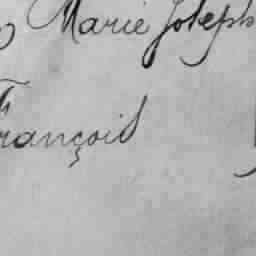 Marie Joseph
François